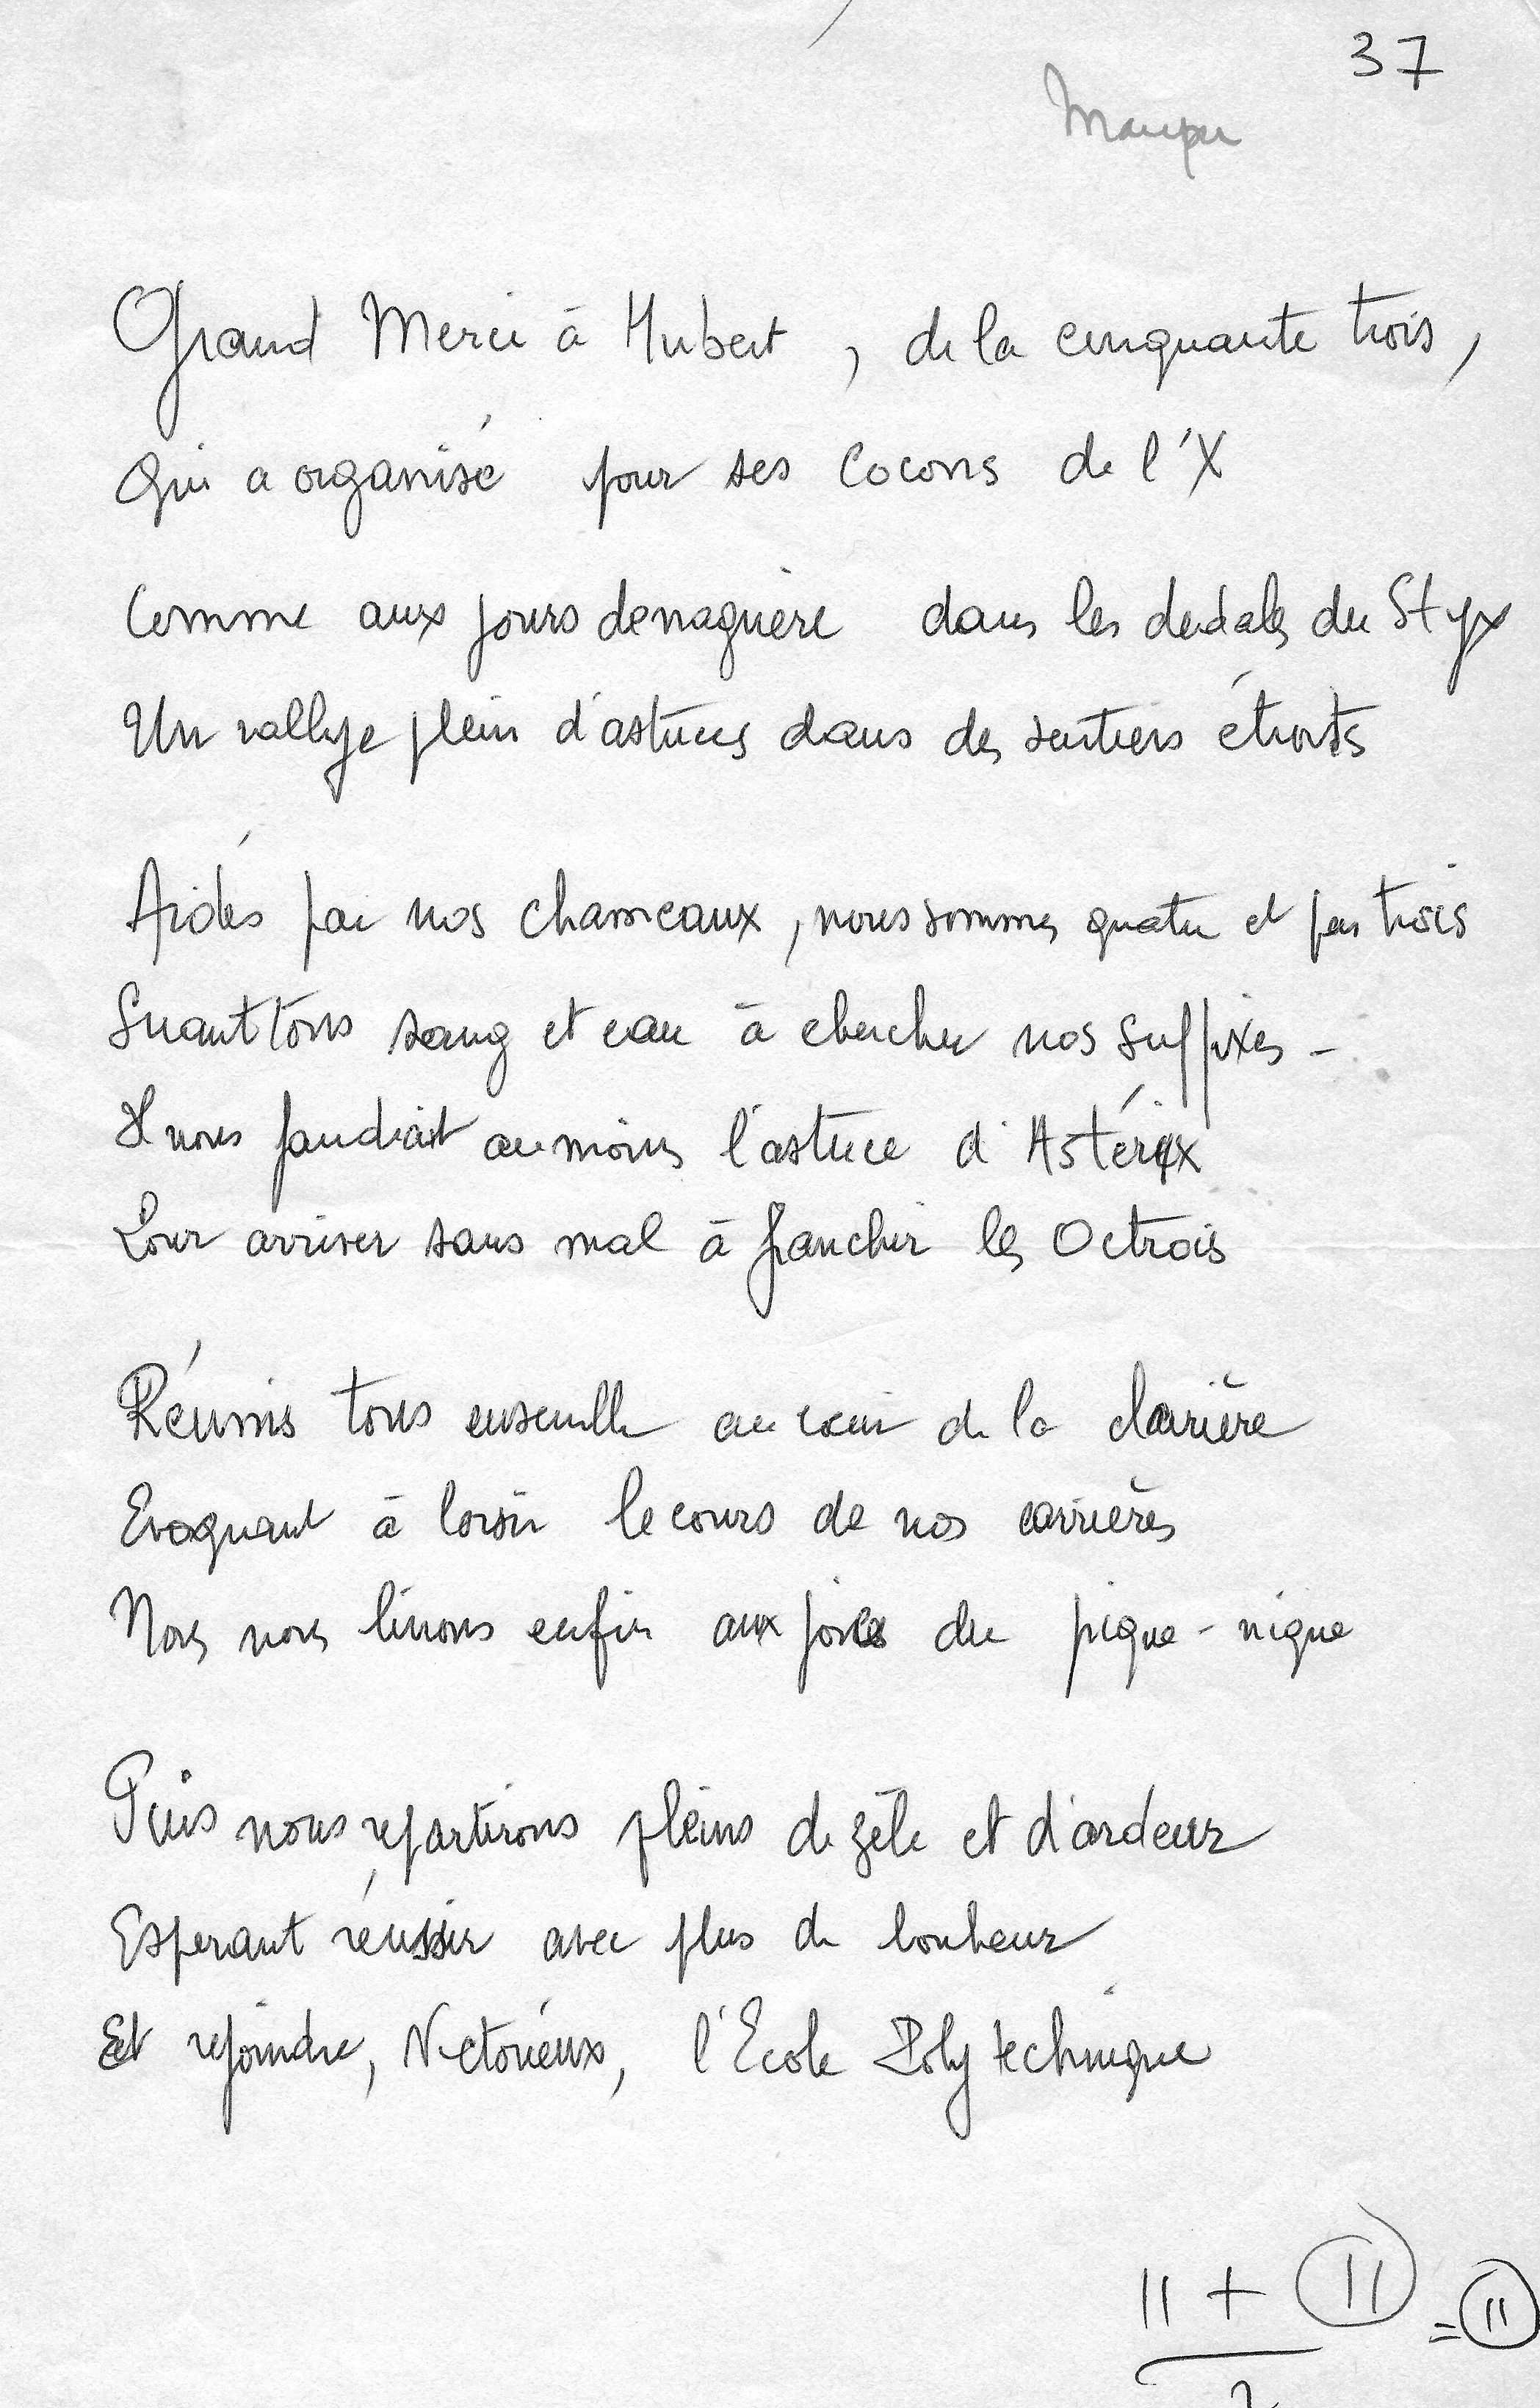 37
Maupu
Grand Merci à Hubert, de la cinquante trois,
Qui a organisé pour ses Cocons de l'X
Comme aux jours de naguère dans les dedales du Styx
Un rallye plein d'astuces dans des sentiers étroits
Aidés par nos chameaux, nous sommes quatre et pas trois
Suant tous sang et eau à chercher nos suffixes -
Il nous faudrait au moins l'astuce d'Astérix
Pour arriver sans mal à franchir les Octrois
Réunis tous ensemble au cœur de la clairière
Evoquant à loisir le cours de nos carrières
Nous nous livrons enfin aux joies du pique-nique
Puis nous repartirons pleins de zèle et d'ardeur
Esperant réussir avec plus de bonheur
Et rejoindre, Victorieux, l'Ecole Polytechnique
11 + 11 = 11
2